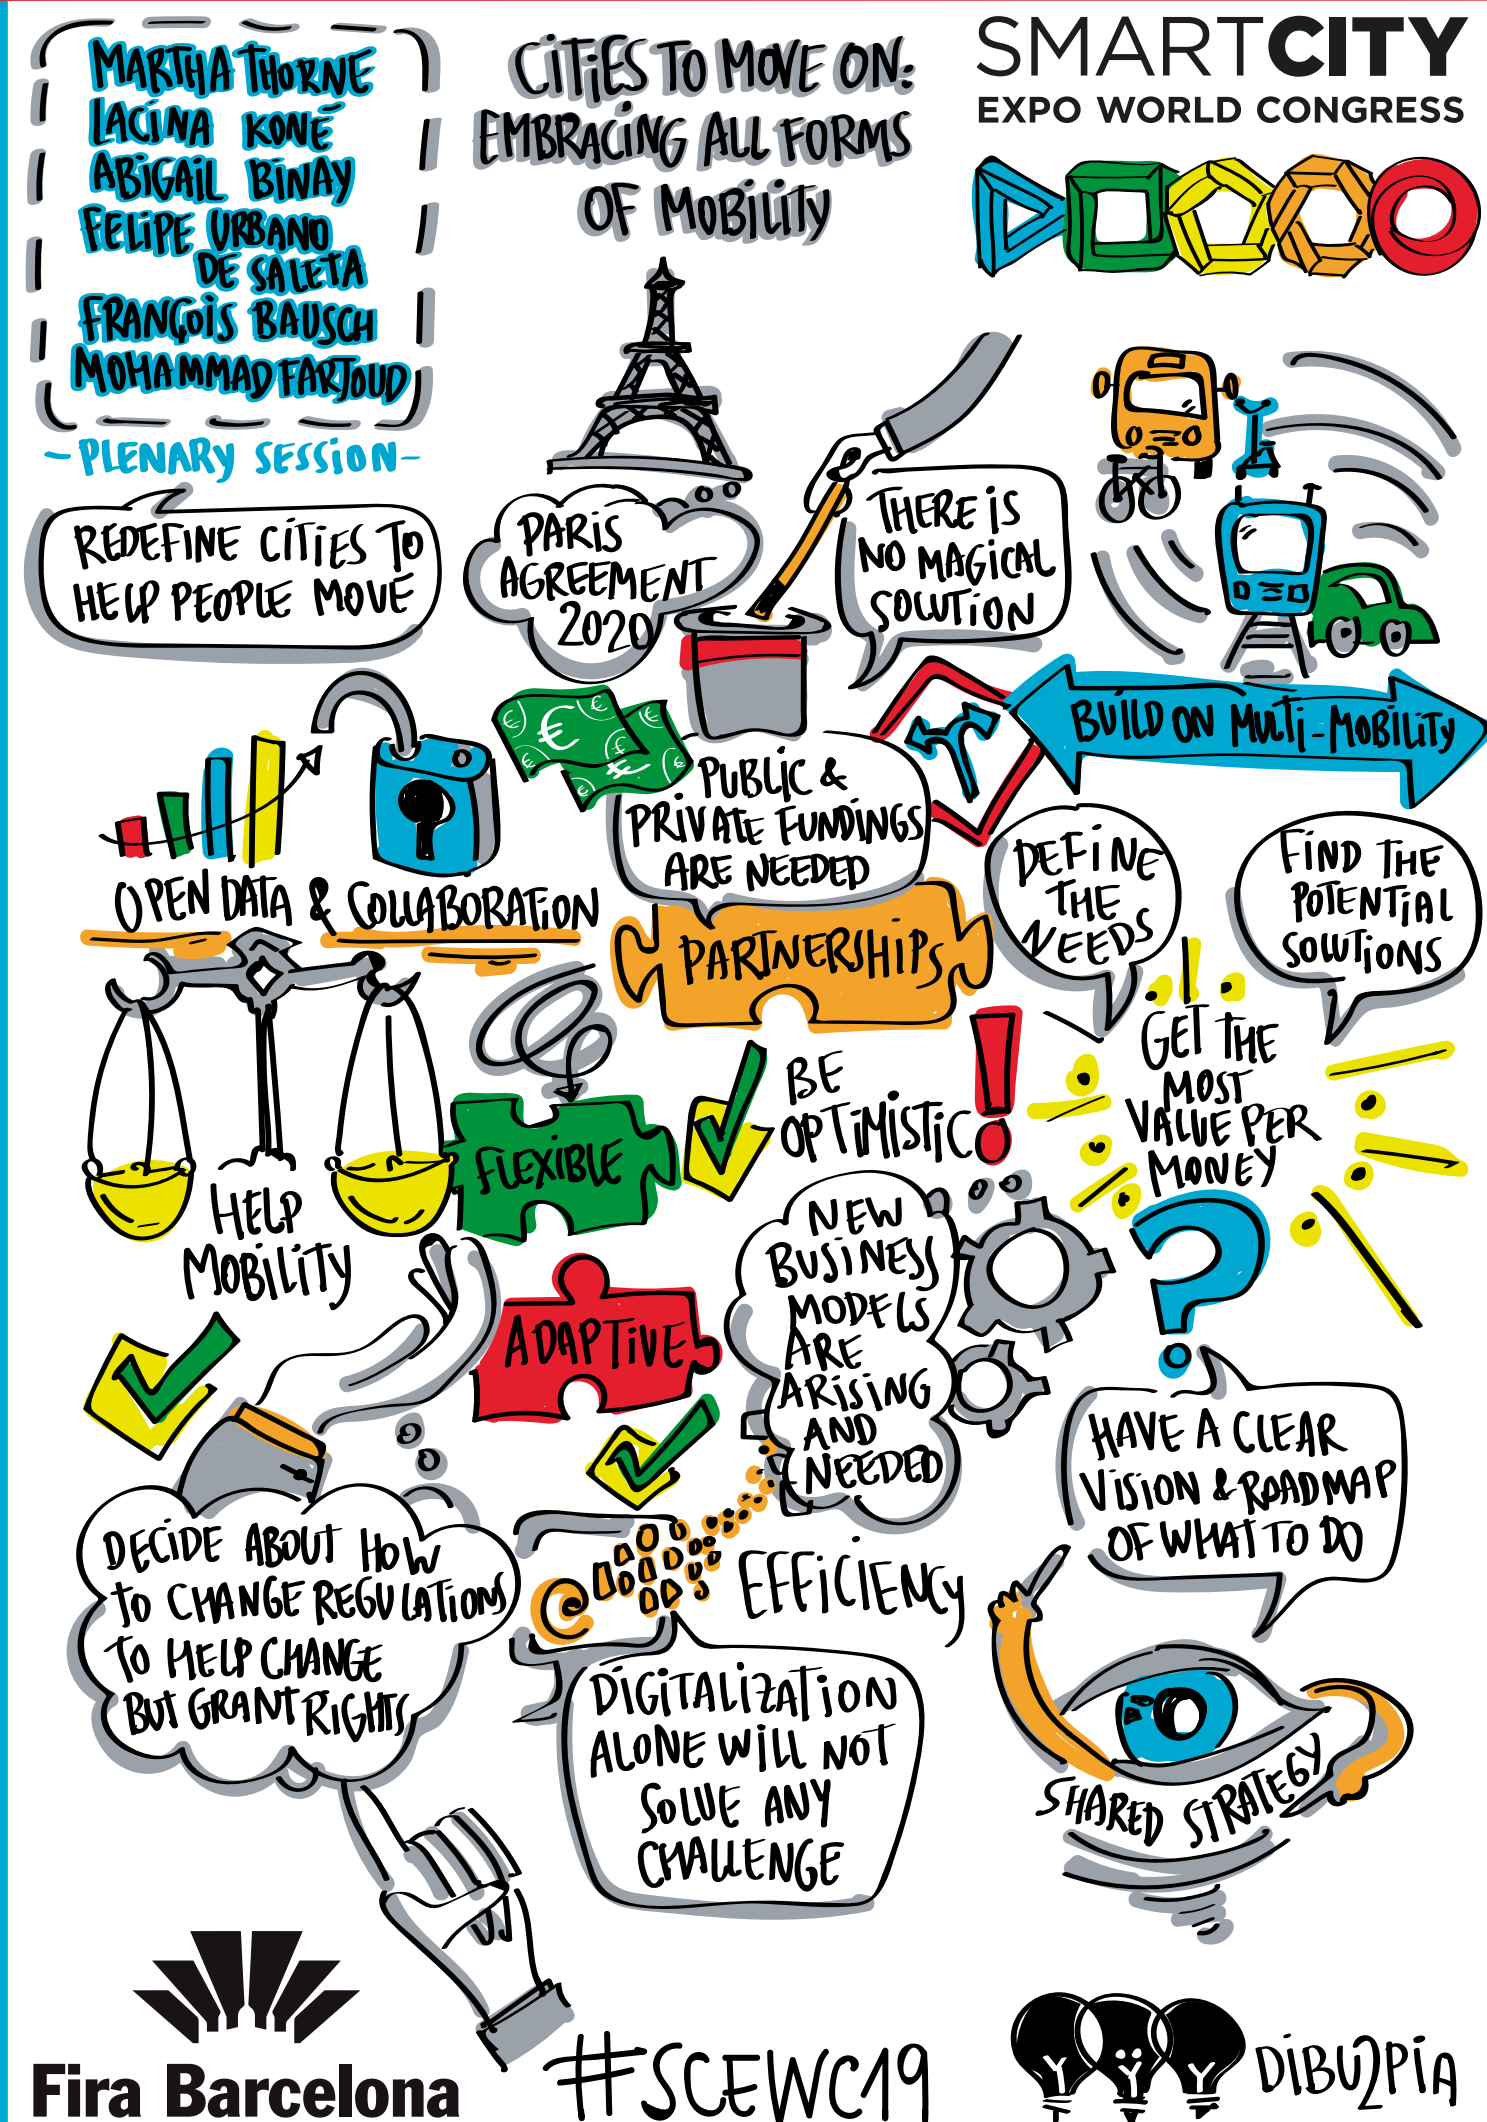 MARTHA THORNE
LACINA KONÉ
ABIGAIL BINAY
FELIPE URBANO
DE SALETA
FRANÇOIS BAUSCH
MOHAMMAD FARJOUD
- PLENARY SESSION -
CITIES TO MOVE ON:
EMBRACING ALL FORMS
OF MOBILITY
SMARTCITY
EXPO WORLD CONGRESS
REDEFINE CITIES TO
HELP PEOPLE MOVE
PARIS
AGREEMENT
2020
THERE IS
NO MAGICAL
SOLUTION
BUILD ON MULTI-MOBILITY
OPEN DATA & COLLABORATION
PUBLIC &
PRIVATE FUNDINGS
ARE NEEDED
PARTNERSHIPS
DEFINE
THE
NEEDS
FIND THE
POTENTIAL
SOLUTIONS
GET THE
MOST
VALUE PER
MONEY
HELP
MOBILITY
FLEXIBLE
BE
OPTIMISTIC!
ADAPTIVE
NEW
BUSINESS
MODELS
ARE
ARISING
AND
NEEDED
?
HAVE A CLEAR
VISION & ROADMAP
OF WHAT TO DO
DECIDE ABOUT HOW
TO CHANGE REGULATIONS
TO HELP CHANGE
BUT GRANT RIGHTS
EFFICIENCY
DIGITALIZATION
ALONE WILL NOT
SOLVE ANY
CHALLENGE
SHARED STRATEGY
Fira Barcelona
#SCEWC19
DIBU2PIA